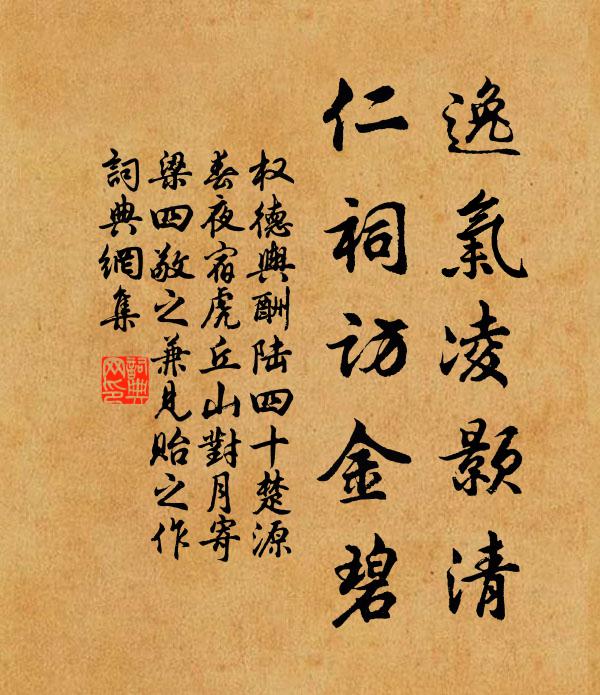 逸氣凌顥清
仁祠訪金碧
权德輿酬陸四十楚源
春夜宿虎丘山對月寄
梁四敬之兼見貽之作
詞典網集
詞典网印